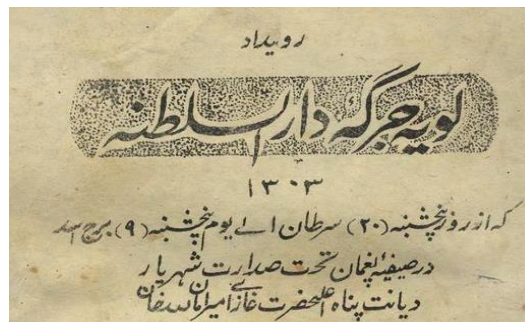 رویداد
لویه جرگهٔ دار السلطنه
۱۳۰۳
که از روز پنجشنبه (۲۰) سرطان الے یوم پنجشنبه (۹) برج اسد
در صیفیهٔ پغمان تحت صدارت شهریار
دیانت پناه اعلیحضرت غازی امیر امان الله خان